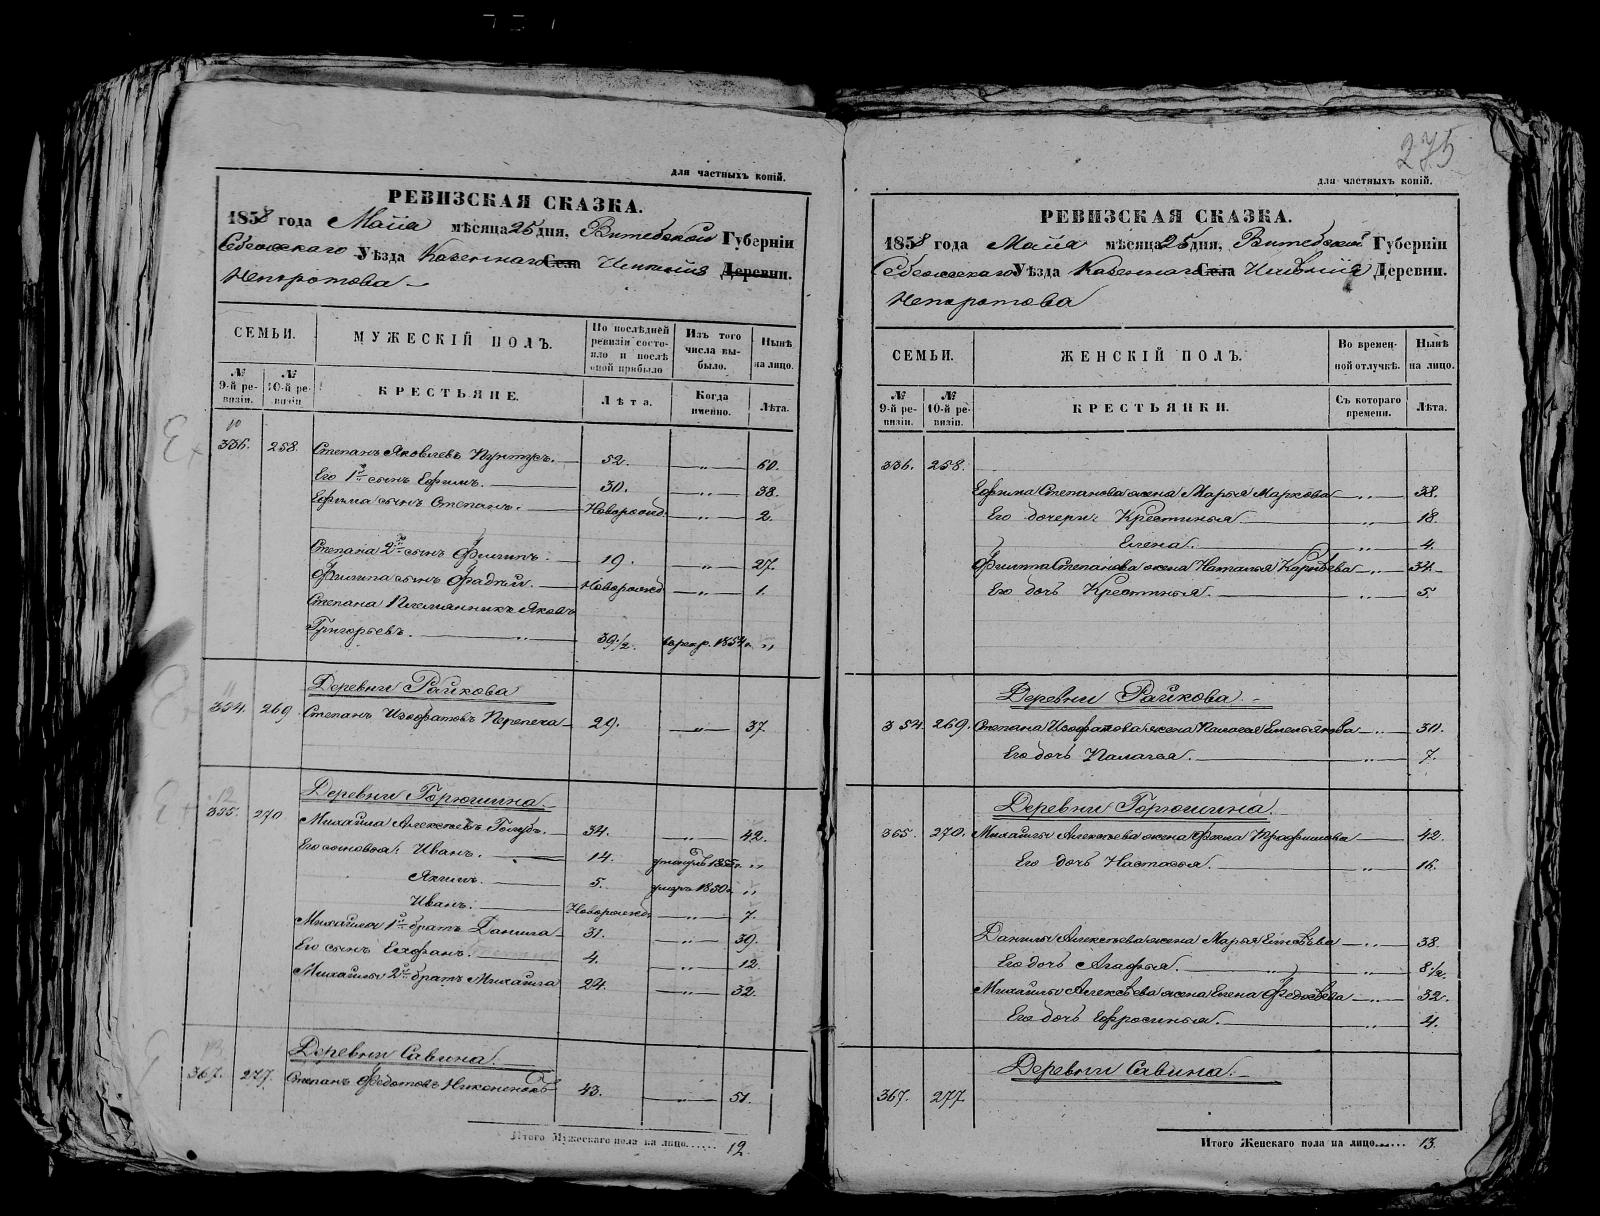 для частныхъ копій.
РЕВИЗСКАЯ СКАЗКА.
1858 года Маія мѣсяца 25 дня, Витебской Губерніи
Себежскаго Уѣзда Казеннаго Села Имѣнія Деревни.
Непоротова
СЕМЬИ.
МУЖЕСКІЙ ПОЛЪ.
По послѣдней ревизіи состояло и послѣ оной прибыло
Изъ того числа выбыло.
Нынѣ на лицо.
№ 9-й ревизіи.
№ 10-й ревизіи
КРЕСТЬЯНЕ.
Лѣта.
Когда именно.
Лѣта.
10
336. 258. Степанъ Яковлевъ Пунтусъ. 52. „ 60.
Его 1й сынъ Ефимъ. 30. „ 38.
Ефима сынъ Степанъ. Новорожд. „ 2.
Степана 2й сынъ Филипъ. 19. „ 27.
Филипа сынъ Фадѣй. Новорожд „ 1.
Степана Племянникъ Яковъ
Григорьевъ. „ 39½. 1854 г. „
11
Деревни Райкова
354. 269. Степанъ Изофатовъ Перепеча 29. „ 37.
12
Деревни Горюшина
355. 270 Михайла Алексѣевъ Голубъ. 34. „ 42.
Его сыновья: Иванъ. 14. 1855 г. „
Якимъ. 5. умеръ 1850 г. „
Иванъ. Новорожд. „ 7.
Михайлы 1й братъ Данила 31. „ 39.
Его сынъ Елхфанъ. 4. „ 12.
Михайлы 2й братъ Михайла 24. „ 32.
13
Деревни Савина.
367. 277. Степанъ Федотовъ Никоненокъ 43. „ 51.
Итого Мужескаго пола на лицо...... 12.
275
для частныхъ копій.
РЕВИЗСКАЯ СКАЗКА.
1858 года Маія мѣсяца 25 дня, Витебской Губерніи
Себежскаго Уѣзда Казеннаго Села Имѣнія Деревни.
Непоротова
СЕМЬИ.
ЖЕНСКІЙ ПОЛЪ.
Во временной отлучкѣ.
Нынѣ на лицо.
№ 9-й ревизіи.
№ 10-й ревизіи.
КРЕСТЬЯНКИ.
Съ котораго времени.
Лѣта.
336. 258.
Ефима Степанова жена Марья Маркова „ 38.
Его дочери: Крестинья „ 18.
Елена. „ 4.
Филипа Степанова жена Наталья Карнѣева „ 34.
Его дочь Крестинья. „ 5.
Деревни Райкова.
354. 269. Степана Изофатова жена Палагея Емельянова „ 30.
Его дочь Палагея. „ 7.
Деревни Горюшина.
365. 270. Михайлы Алексѣева жена Фекла Трофимова „ 42.
Его дочь Настасья. „ 16.
Данилы Алексѣева жена Марья „ 38.
Его дочь Агафья. „ 8½.
Михайлы Алексѣева жена Елена Федосѣева „ 32.
Его дочь Ефросинья. „ 4.
Деревни Савина.
367. 277
Итого Женскаго пола на лицо...... 13.